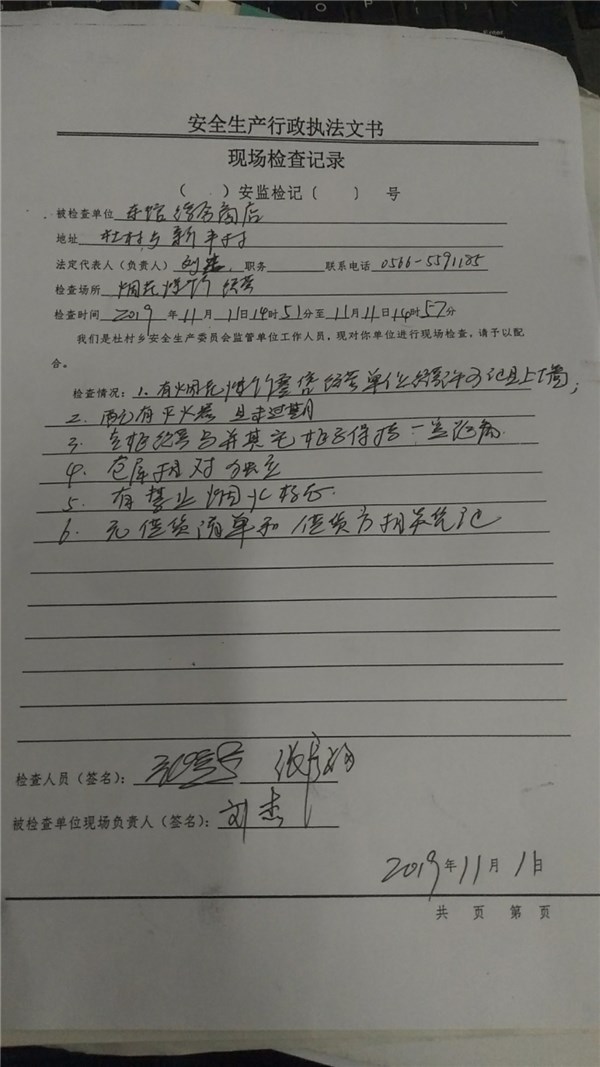 安全生产行政执法文书
现场检查记录
（ ）安监检记〔 〕 号
被检查单位 综合商店
地址 杜村乡新丰村
法定代表人（负责人）刘杰 职务 联系电话 0566-5591185
检查场所 烟花爆竹经营
检查时间 2019 年 11 月 1 日 14 时 51 分至 11 月 1 日 14 时 57 分
我们是杜村乡安全生产委员会监管单位工作人员，现对你单位进行现场检查，请予以配
合。
检查情况：1、有烟花爆竹零售经营单位经营许可证且上墙；
2、配有灭火器 且未过期
3、专柜经营与并其它柜台保持一定距离
4、仓库相对独立
5、有禁止烟火标示
6、无供货清单和供货方相关凭证
检查人员（签名）：
被检查单位现场负责人（签名）：刘杰
2019 年 11 月 1 日
共 页 第 页